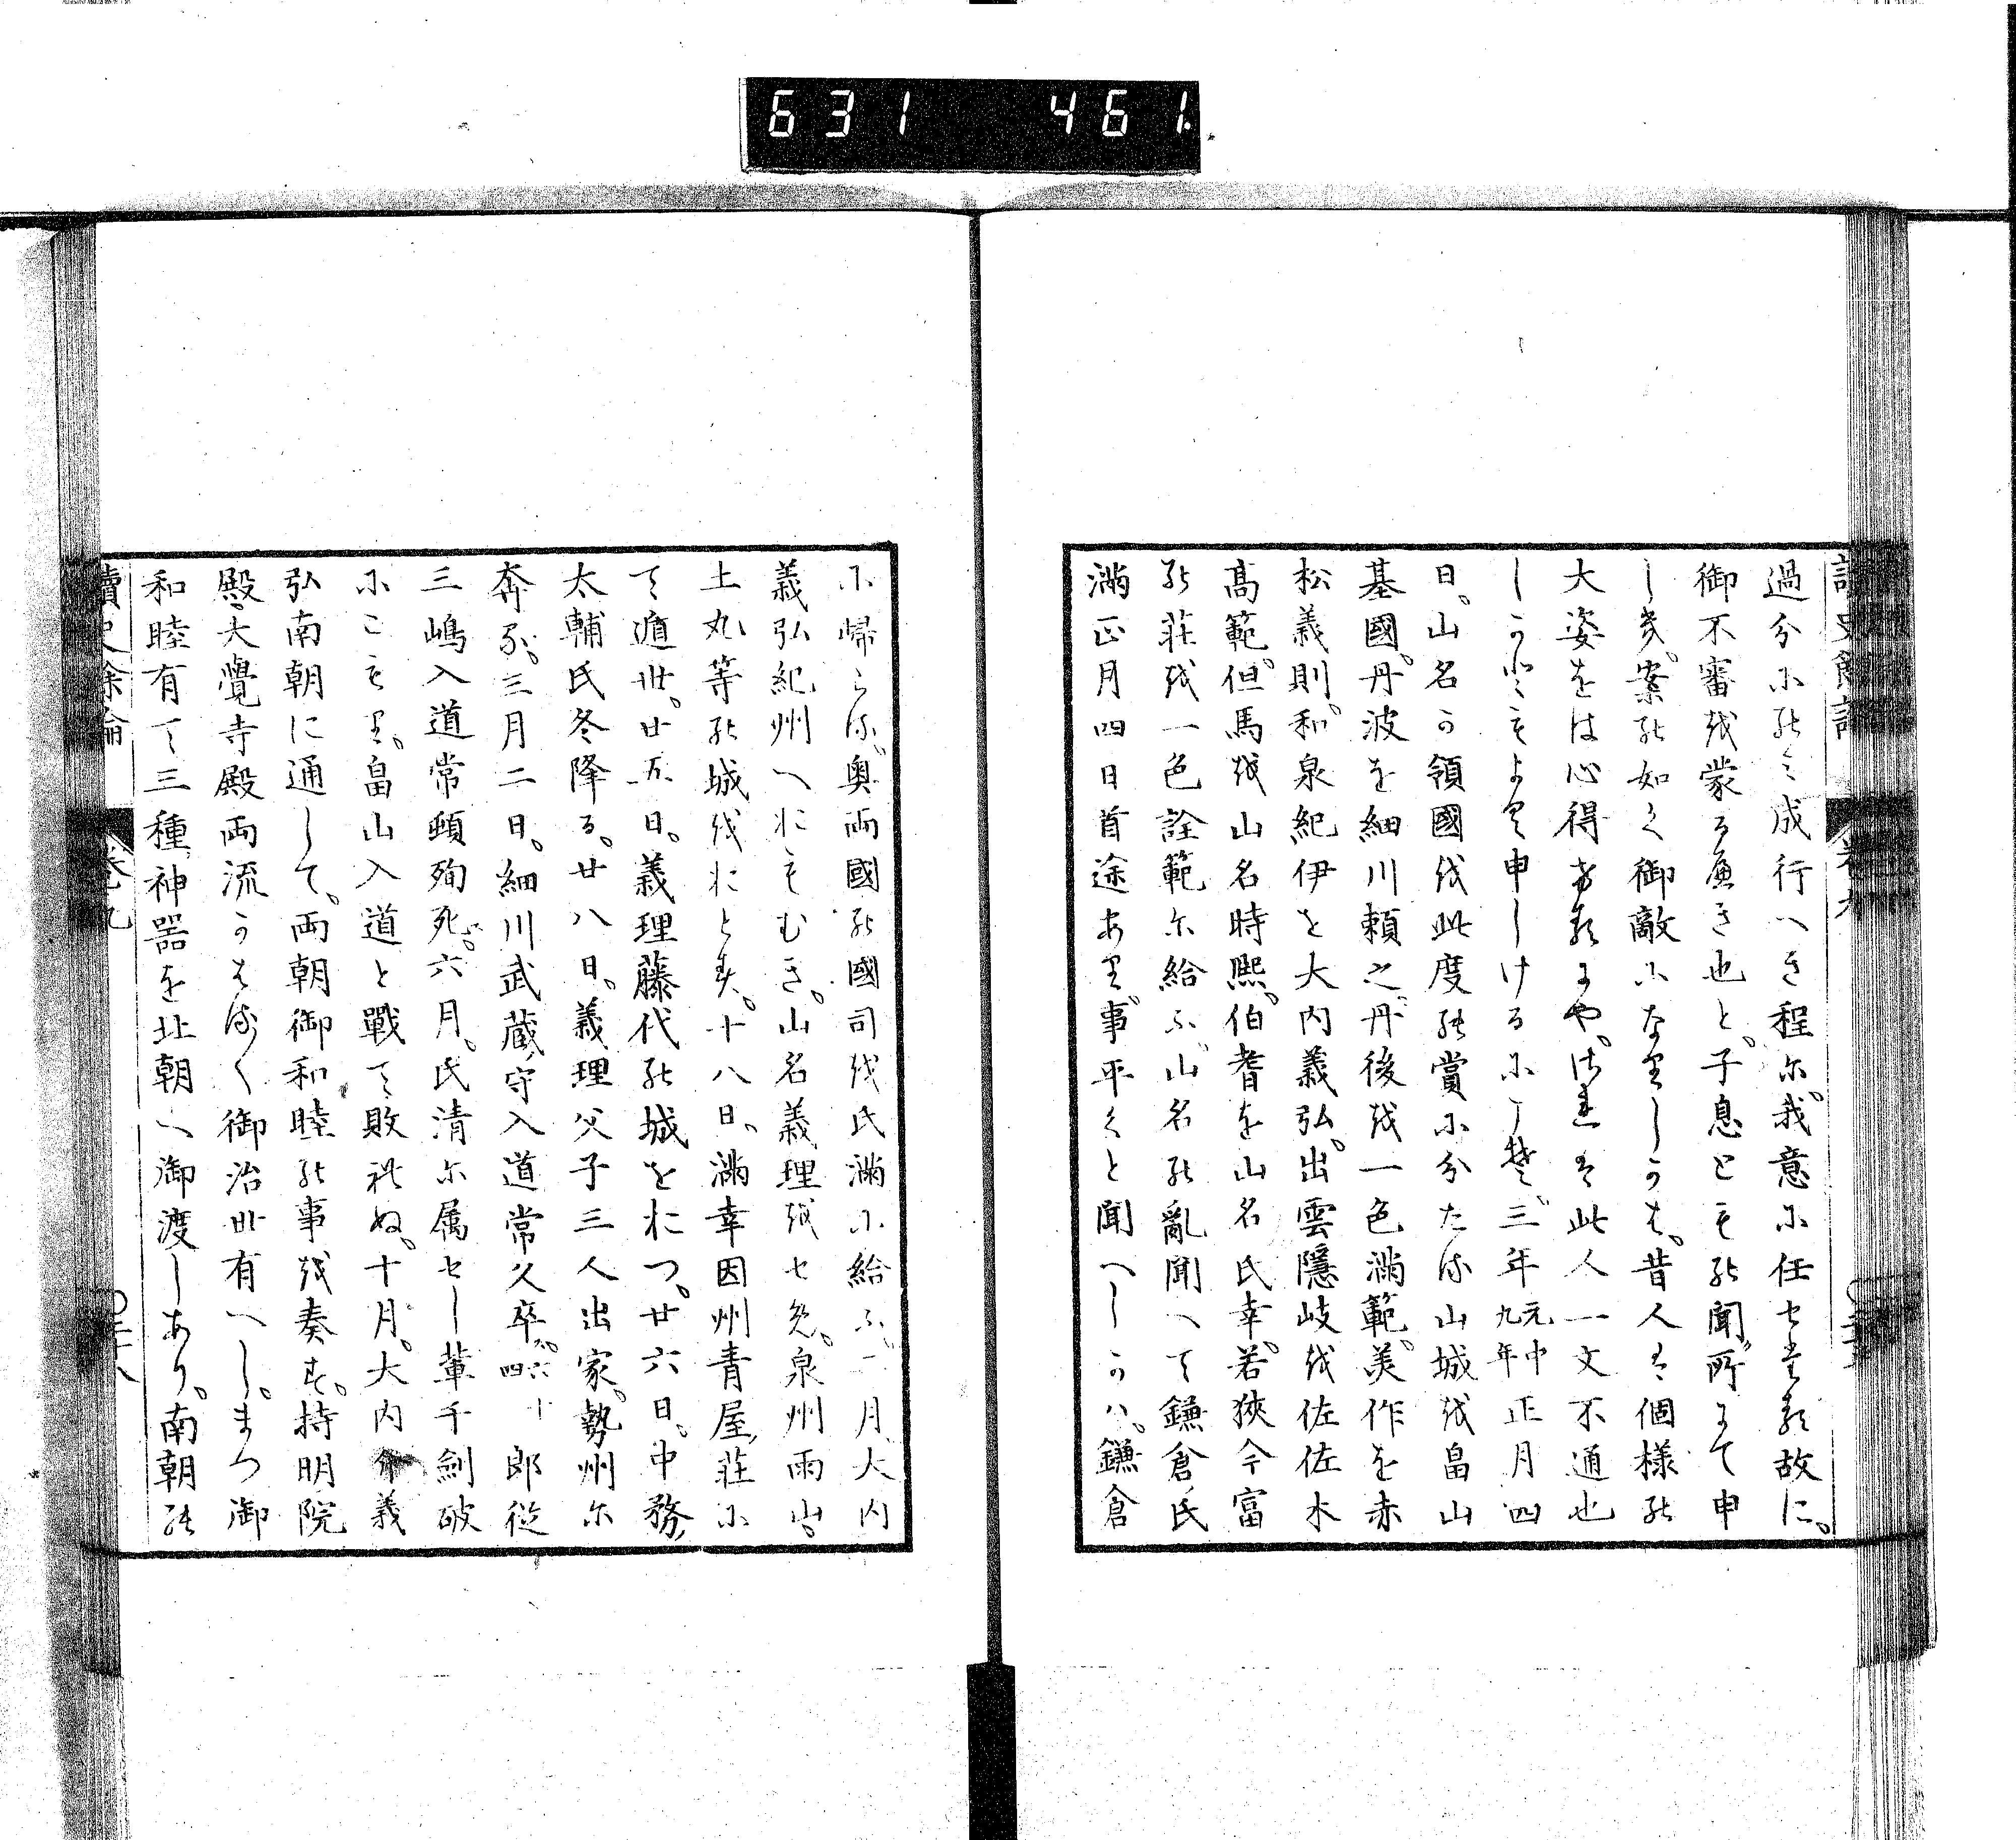 631 461
過分にのミ成行へき程に我意に任せたる故に
御不審を蒙る廉き也と子息とも の聞所にて申
しき案の如く御敵になりしかは昔人は個様の
大姿をは心得けるにや
此人一文不通也
しかともよく申しけるにこそ三年元中九年正月四
日山名か領國を此度の賞に分たる山城を畠山
基國丹波を細川頼之丹後を一色満範美作を赤
松義則和泉紀伊を大内義弘出雲隠岐を佐佐木
高範但馬を山名時熙伯耆を山名氏幸若狹今富
の莊を一色詮範に給ふ山名の亂聞へて鎌倉氏
滿正月四日首途あり事平くと聞へしかハ鎌倉
に帰らる奥両國の國司を氏滿に給ふ二月大内
義弘紀州へおもむき山名義理をせむ泉州雨山
土丸等の城をおとす十八日滿幸因州青屋莊に
て遁世廿五日義理藤代の城をおつ廿六日中務
太輔氏冬降る廿八日義理父子三人出家勢州に
奔る三月二日細川武蔵守入道常久卒六十四郎従
三嶋入道常頤殉死六月氏清に属せし輩千劍破
にこもり畠山入道と戰て敗れぬ十月大内介義
弘南朝に通して両朝御和睦の事を奏す持明院
殿大覺寺殿両流かはるく御治世有へしまつ御
和睦有て三種神器を北朝へ御渡しあり南朝の
讀史余論 巻九